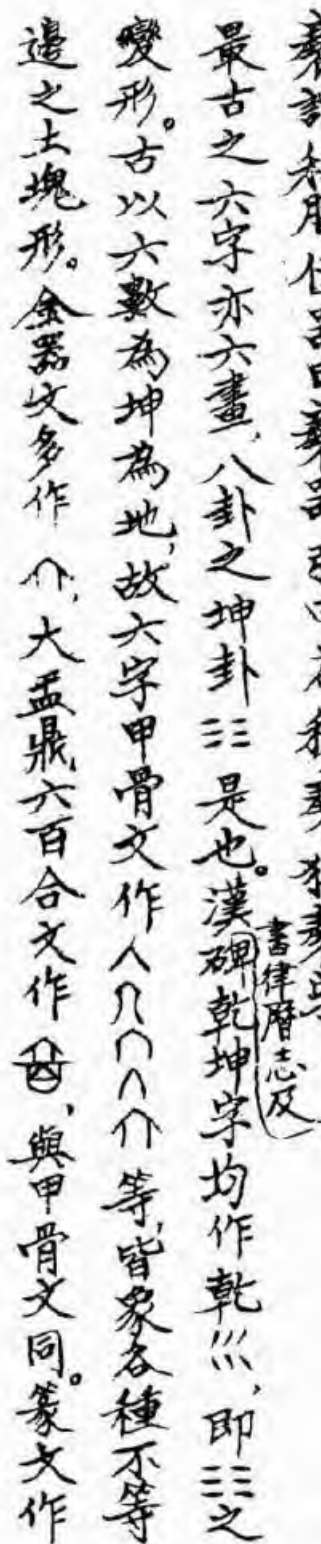 最古之六字亦六畫，八卦之坤卦☷是也。漢書律曆志及碑乾坤字均作乾巛，即☷之
變形。古以六數為坤為地，故六字甲骨文作 等，皆象各種不等
邊之土塊形。金器文多作 ，大盂鼎六百合文作 ，與甲骨文同。篆文作